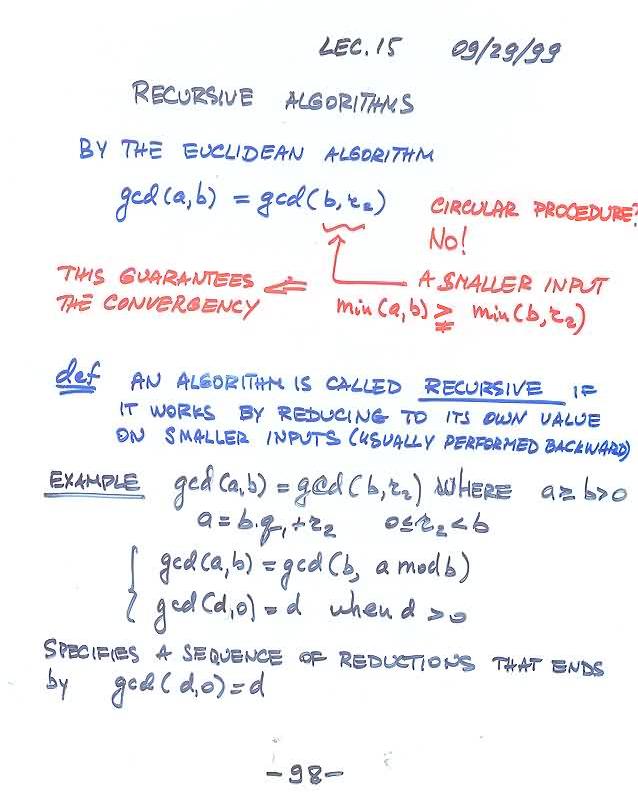 LEC. 15 09/29/99
RECURSIVE ALGORITHMS
BY THE EUCLIDEAN ALGORITHM
gcd(a,b) = gcd(b,r₂)
CIRCULAR PROCEDURE?
No!
THIS GUARANTEES ⇐ A SMALLER INPUT
THE CONVERGENCY min(a,b) ≩ min(b,r₂)
def AN ALGORITHM IS CALLED RECURSIVE IF
IT WORKS BY REDUCING TO ITS OWN VALUE
ON SMALLER INPUTS (USUALLY PERFORMED BACKWARD)
EXAMPLE gcd(a,b) = gcd(b,r₂) WHERE a≥b>0
a=b.q₁+r₂ 0≤r₂<b
{ gcd(a,b) = gcd(b, a mod b)
gcd(d,0) = d when d >0
SPECIFIES A SEQUENCE OF REDUCTIONS THAT ENDS
by gcd(d,0)=d
-98-